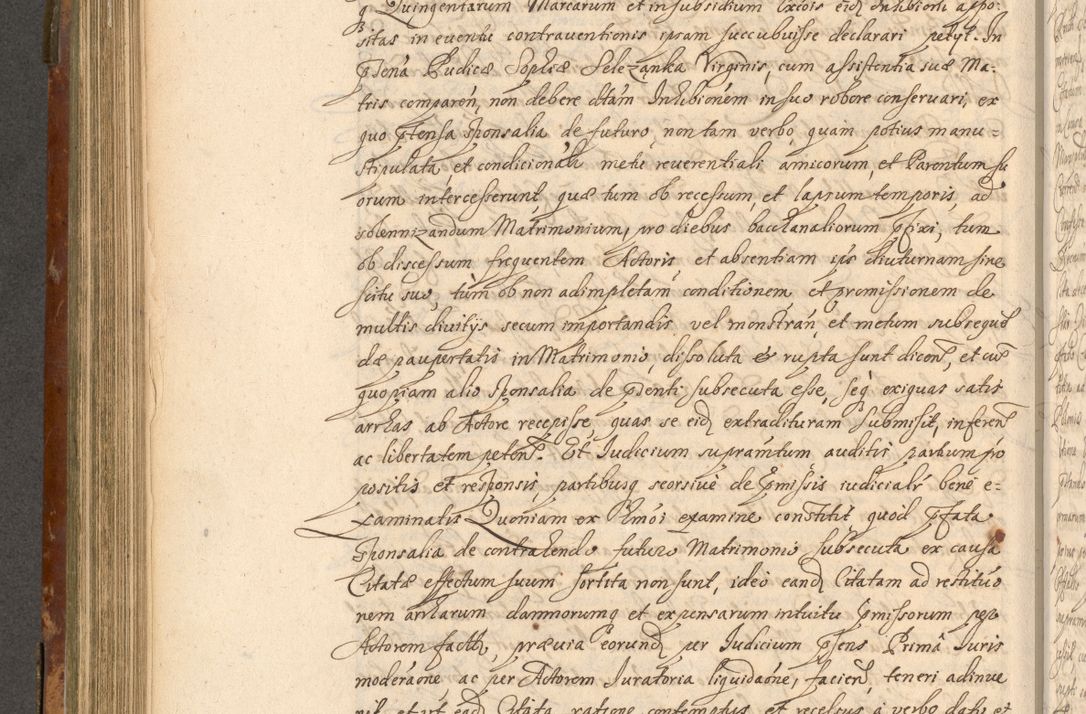 q Quingentarum Marcarum et in subsidium Excõis eid Inhibioni appo:
sitas in eventu contraventionis ipsam succubuisse declarari petyt. In
Pñtia Pudicæ Sophiæ Selezanka Virginis, cum assistentia suæ Ma:
tris comparen, non debere dtãm Inhibionem in suo robore conservari, ex
quo ptensa sponsalia de futuro, non tam verbo quam potius manu=
stipulata, et condicionata metu reverentiali amicorum, et Parentum su
orum intercesserunt, quæ tum ob recessum, et lapsum temporis, ad
solennizandum Matrimonium, pro diebus bacchanaliorum pfixi, tum
ob discessum frequentem Actoris et absentiam ips diuturnam sine
scitu suo, tum ob non adimpletam conditionem et promissionem de
multis divitijs secum importandis vel monstran, et metum subsequen
dæ paupertatis in Matrimonio, dissoluta & rupta sunt dicen, et cum
quopiam alio sponsalia de pñti subsecuta esse, seq exiguas satis
arrhas ab Actore recepisse, quas se eid extradituram submisit, inferen
ac libertatem peten. Et Iudicium supramtum auditis partium pro
positis et responsis, partibusq seorsive de præmissis iudicialr bene e=
xaminatis Quoniam ex Emõi examine constitit quod pfata
Sponsalia de contrahendo futuro Matrimonio subsecuta ex causa
Citatæ effectum suum sortita non sunt, ideo eand Citatam ad restituo
nem arrharum damnorumq et expensarum intuitu præmissorum per
Actorem facta, prævia eorund per Iudicium pñs Prima Iuris
moderãone ac per Actorem Iuratoria liquidaõne, facien, teneri adinve
nit, et ut ead Citata ratione contemptus et recessus a verbo datis et